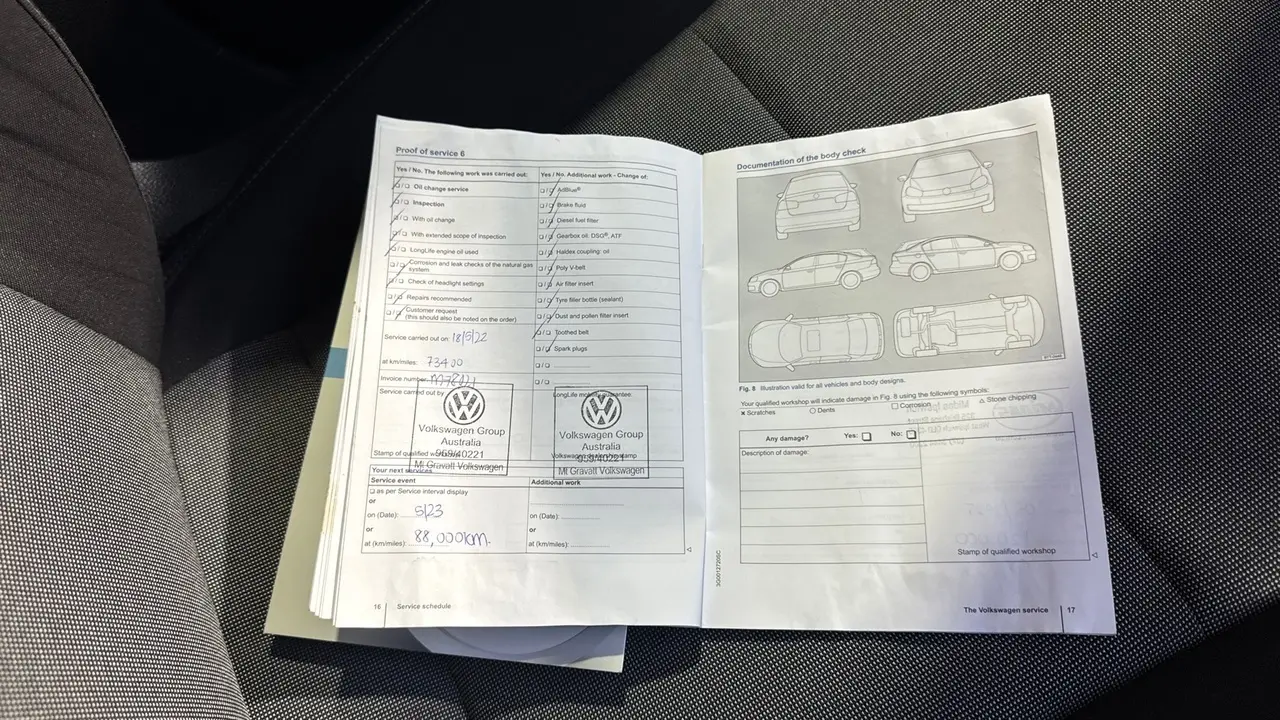 Proof of service 6
Yes / No. The following work was carried out:
❑/❑ Oil change service
❑/❑ Inspection
❑/❑ With oil change
❑/❑ With extended scope of inspection
❑/❑ LongLife engine oil used
❑/❑ Corrosion and leak checks of the natural gas
system
❑/❑ Check of headlight settings
❑/❑ Repairs recommended
❑/❑ Customer request
(this should also be noted on the order)
Service carried out on: 18/5/22
at km/miles: 73400
Invoice number:
Service carried out by
Volkswagen Group
Australia
969/40221
Mt Gravatt Volkswagen
Stamp of qualified
Yes / No. Additional work - Change of:
❑/❑ AdBlue®
❑/❑ Brake fluid
❑/❑ Diesel fuel filter
❑/❑ Gearbox oil: DSG®, ATF
❑/❑ Haldex coupling: oil
❑/❑ Poly V-belt
❑/❑ Air filter insert
❑/❑ Tyre filler bottle (sealant)
❑/❑ Dust and pollen filter insert
❑/❑ Toothed belt
❑/❑ Spark plugs
❑/❑
❑/❑
LongLife mobility guarantee:
Volkswagen Group
Australia
969/40221
Mt Gravatt Volkswagen
Your next services
Service event
❑ as per Service interval display
or
on (Date): 5/23
or
at (km/miles): 88,000km.
Additional work
on (Date):
or
at (km/miles):
16 Service schedule
Documentation of the body check
Fig. 8 Illustration valid for all vehicles and body designs.
Your qualified workshop will indicate damage in Fig. 8 using the following symbols:
× Scratches ○ Dents □ Corrosion △ Stone chipping
Any damage? Yes: ❑ No: ❑
Description of damage:
Stamp of qualified workshop
3G0012720SC
The Volkswagen service 17